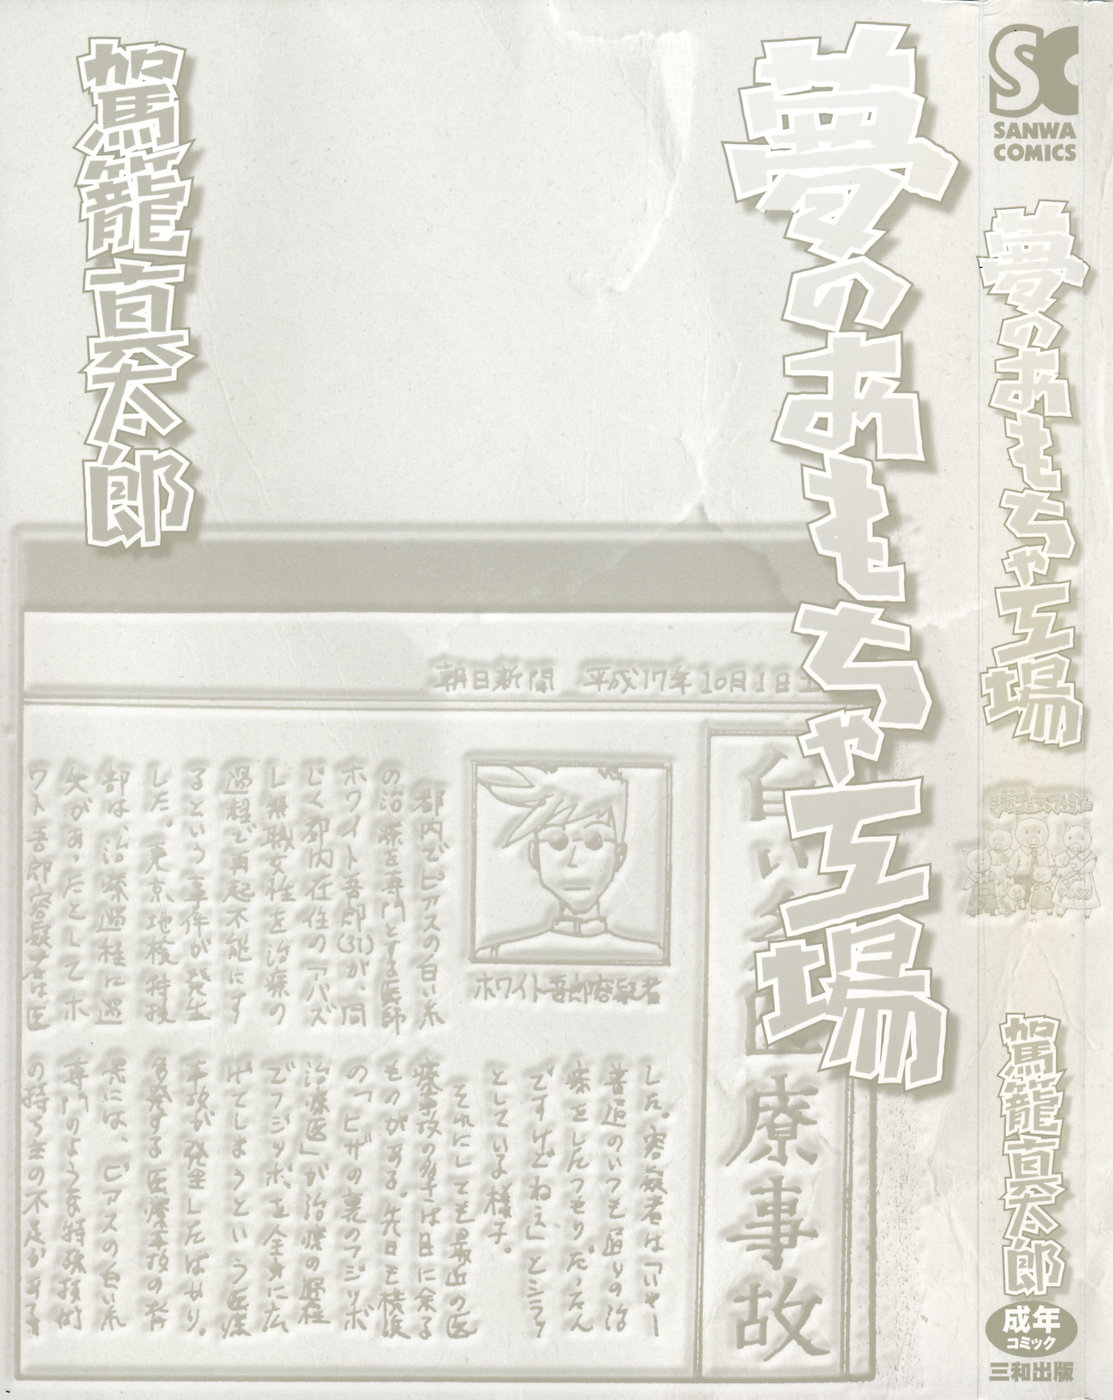 夢のおもちゃ工場
駕籠真太郎
朝日新聞 平成17年10月1日
白い糸医療事故
ホワイト吾郎容疑者
都内でピアスの白い糸
の治療を専門とする医師
ホワイト吾郎(31)が、同
じく都内在住のアバズ
レ無職女性を治療の
過程で再起不能にす
るという事件が発生
した。東京地検特捜
部は、治療過程に過
失があったとしてホ
ワイト吾郎容疑者は医
した。容疑者は「いやー
普通のいつも通りの治
療をしたつもりだったん
ですけどねぇ」とシラッ
としていた様子。
それにしても最近の医
療事故の多さは目に余る
ものがある。先日も
の「ヒザの裏のフジツボ
治療医」が治療の過程
でフジツボを全身に広
げてしまうという医療
事故が発生したばかり。
多発する医療事故の背
景には、ピアスの白い糸
専門のような特殊技術
の持ち主の不足がある
SC
SANWA
COMICS
夢のおもちゃ工場
駕籠真太郎
成年
コミック
三和出版